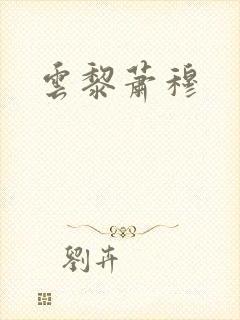 雲黎蕭穆
劉卉